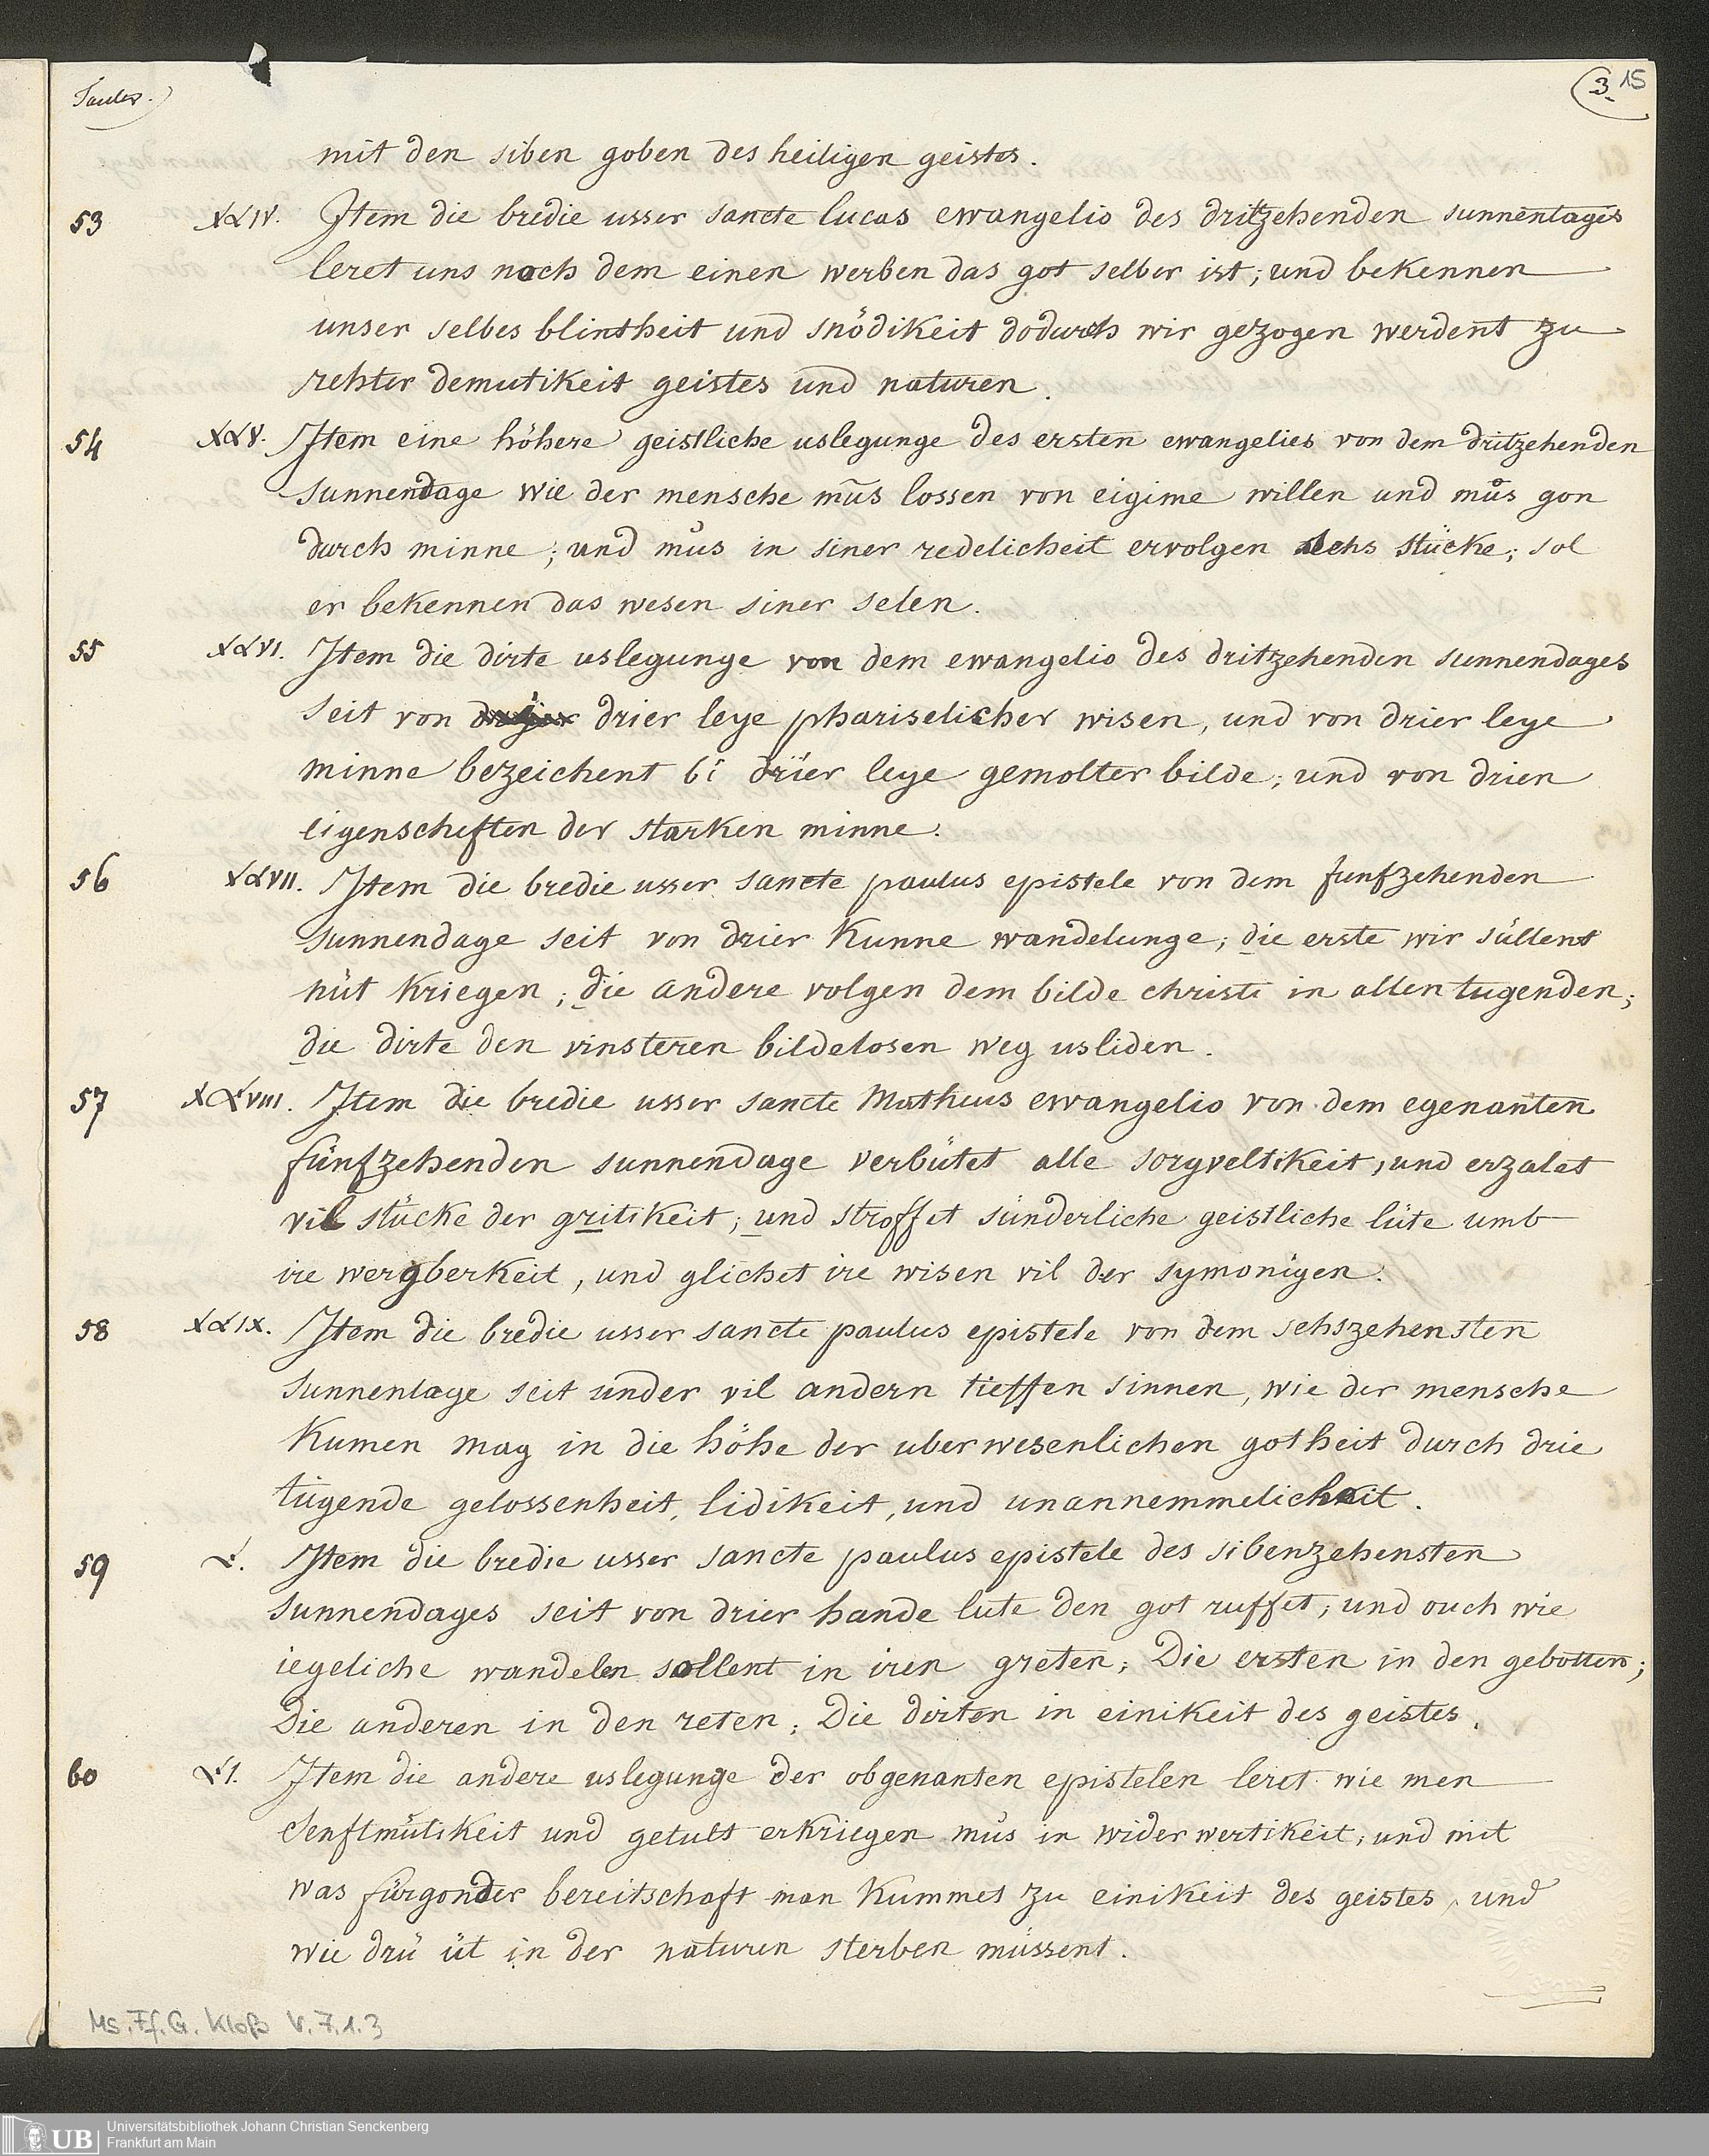 Tauler.
3. 15
mit den siben goben des heiligen geistes.
53 XLIV. Item die bredie usser sancte lucas ewangelio des dritzehenden sunnentages
leret uns noch dem einen werben das got selber ist; und bekennen
unser selbes blintheit und snödikeit dodurch wir gezogen werdent zu
rehter demutikeit geistes und naturen.
54 XLV. Item eine höhere geistliche uslegunge des ersten ewangelies von dem dritzehenden
sunnendage wie der mensche můs lossen von eigime willen und můs gon
durch minne; und můs in siner redelicheit ervolgen sehs stücke; sol
er bekennen das wesen siner selen.
55 XLVI. Item die dirte uslegunge von dem ewangelio des dritzehenden sunnendages
seit von drier leye phariselicher wisen, und von drier leye
minne bezeichent bi drier leye gemolter bilde; und von drien
eigenscheften der starken minne.
56 XLVII. Item die bredie usser sancte paulus epistele von dem funfzehenden
sunnendage seit von drier kunne wandelunge; die erste wir süllent
nüt kriegen; die andere volgen dem bilde christi in allen tugenden;
die dirte den vinsteren bildelosen weg usliden.
57 XLVIII. Item die bredie usser sancte Matheus ewangelio von dem egenanten
fünfzehenden sunnendage verbütet alle sorgveltikeit, und erzalet
vil stücke der gritikeit; und stroffet sünderliche geistliche lüte umb
ire wergberkeit, und glichet ire wisen vil der symonigen.
58 XLIX. Item die bredie usser sancte paulus epistele von dem sehszehensten
sunnentage seit under vil andern tieffen sinnen, wie der mensche
kumen mag in die höhe der uberwesenlichen gotheit durch drie
tugende gelossenheit, lidikeit, und unannemmelicheit.
59 L. Item die bredie usser sancte paulus epistele des sibenzehensten
sunnendages seit von drier hande lute den got ruffet; und ouch wie
iegeliche wandelen sollent in iren greten; Die ersten in den gebotten;
Die anderen in den reten; Die dirten in einikeit des geistes.
60 LI. Item die andere uslegunge der obgenanten epistelen leret wie men
senftmůtikeit und getult erkriegen můs in widerwertikeit, und mit
was fürgonder bereitschaft man kummet zu einikeit des geistes, und
wie drü üt in der naturen sterben müssent.
Ms. Ff. G. Kloß V. 7. 1. 3
UB
Universitätsbibliothek Johann Christian Senckenberg
Frankfurt am Main